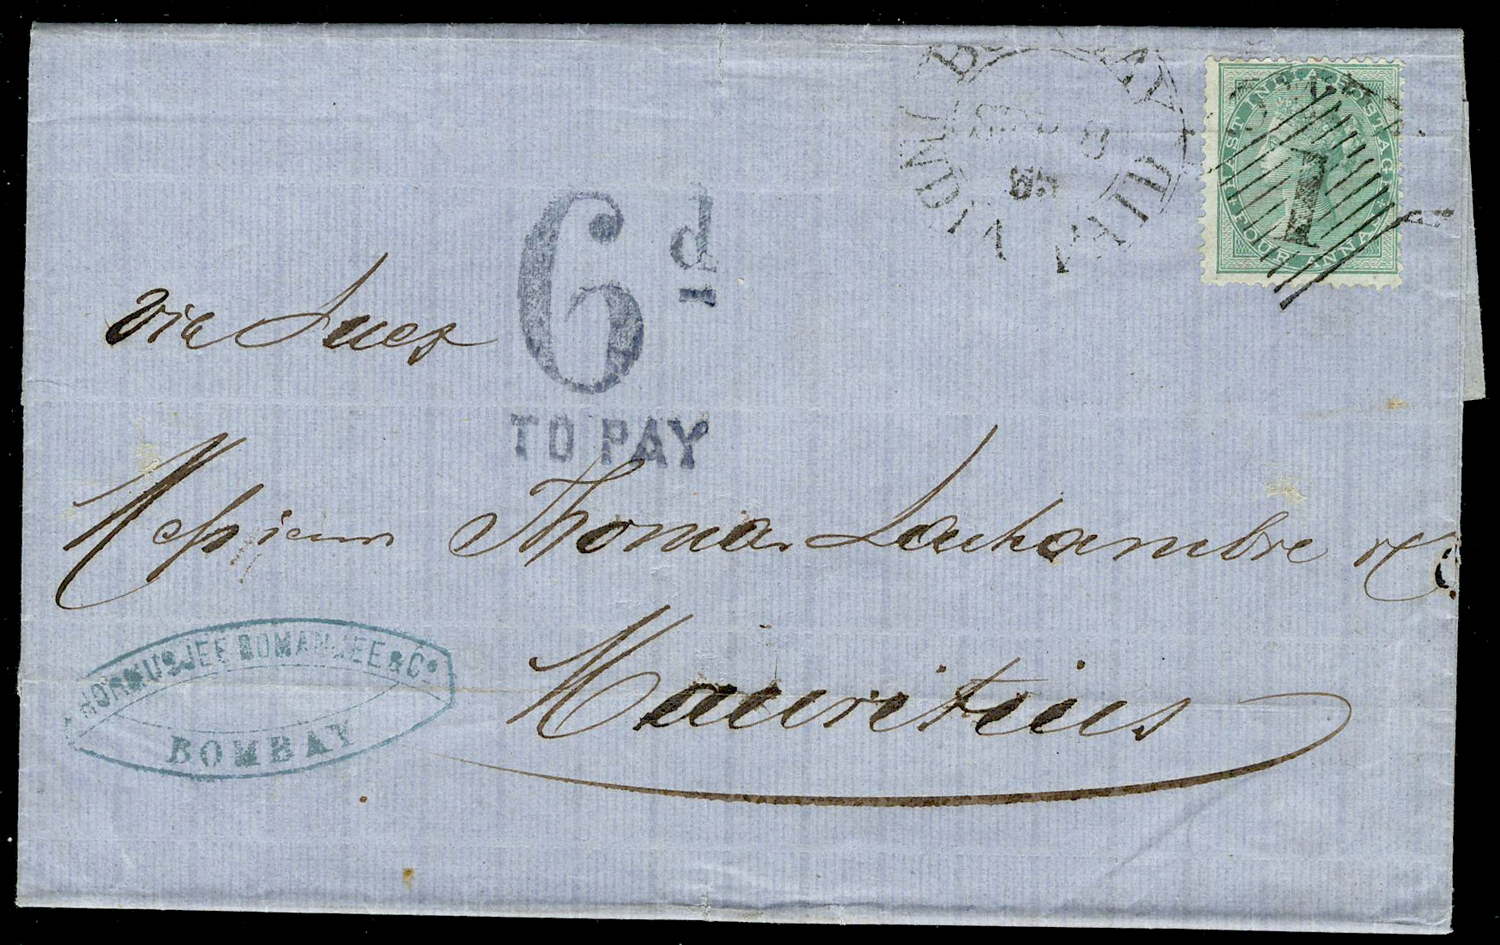 BOMBAY
INDIA PAID
EAST INDIA POSTAGE
1
FOUR ANNAS
6d
TO PAY
via Suez
Messieurs Thomas Lachambre & Co.
Mauritius
HORMUSJEE BOMANJEE & Co.
BOMBAY